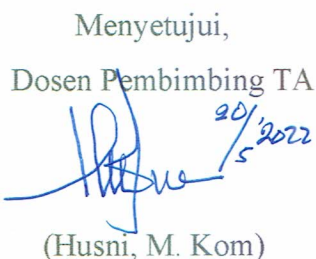 Menyetujui,
Dosen Pembimbing TA
20/5 '2022
(Husni, M. Kom)